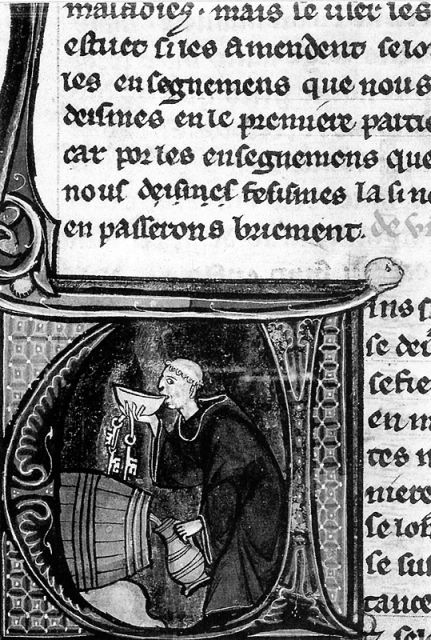 maladies. mais se user les
estuet si les amendent selo
les ensegnemens que nous
desimes en le premiere partie
car por les ensegnemens que
nous desimes fesismes la
en passerons briement. de
ins
se dei
se fie
en m
niere
se
se
tance